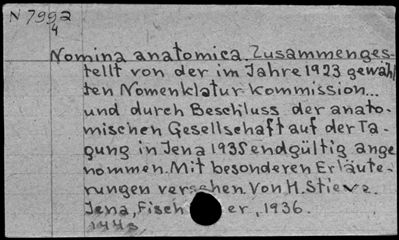 N 7992
4
Nomina anatomica. Zusammenges-
tellt von der im Jahre 1923 gewähl
ten Nomenklatur kommission...
und durch Beschluss der anato-
mischen Gesellschaft auf der Ta-
gung in Jena 1935 endgültig ange
nommen. Mit besonderen Erläute-
rungen versehen. Von H. Stieve.
Jena, Fischer, 1936.